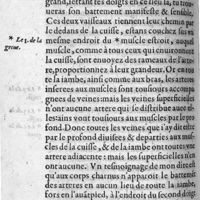 grand, jettant les doigts en ce lieu là, tu trou-
ueras son battement manifeste & sensible.
Ces deux vaisseaux tiennent leur chemin par
le dedans de la cuisse, estans couchez sur vn
mesme endroit du * muscle estroit, auquel
* Le 3. de la
greue.
muscle, comme à tous ceux qui enuironnent
la cuisse, sont enuoyez des rameaux de l'arte-
re, proportionnez à leur grandeur. Or en tou
te la iambe, ainsi comme aux bras, insques les
arteres internes aux muscles sont tousiours accom-
pagnees de veines: mais les veines superficielles
n'ont aucune artere qui se distribue aucc
les estans vont tousiours aux muscles par le pro
fond. Donc toutes les veines qui i'ay dit estre
par le profond diuisees & departies aux mus-
cles de la cuisse, & de la iambe ont toutes vne
artere adiacente: mais les superficielles n'en
ont aucune. Vn tesmoignage de mon dire est
qu'aux corps charnus n'apparoit le battement
des arteres en aucun lieu de toute la iambe,
fors en l'auantpied, à l'endroit du second doigt